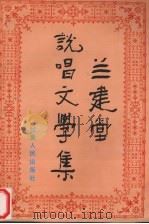 兰建堂
說唱文學集
人民出版社